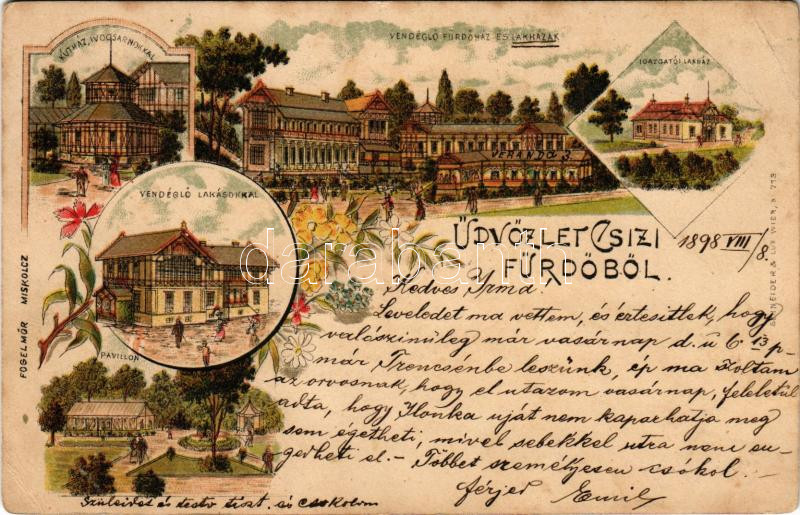 KÚTHÁZ, IVÓCSARNOKKAL
VENDÉGLŐ FÜRDŐHÁZ ÉS LAKHÁZAK
IGAZGATÓI LAKHÁZ
VERANDA
VENDÉGLŐ LAKÁSOKKAL
PAVILLON
FOGELMÓR MISKOLCZ
ÜDVÖZLET CSIZI
FÜRDŐBŐL.
1898 VIII/8.
SCHNEIDER & LUX WIEN, 713
darabanth.com
Kedves Irma!
Leveledet ma vettem, és értesitlek, hogy
valószinüleg már vasárnap d. u 6 13 p-
már Trencsénbe leszünk, ép ma szoltam
az orvosnak, hogy el utazom vasárnap, feleletül
adta, hogy Ilonka uját nem kaparhatja meg
sem égetheti, mivel sebekkel utra nem en-
gedheti el. – Többet személyesen csókol
férjed Emil
Szüleidet és testv tiszt. és csokolom